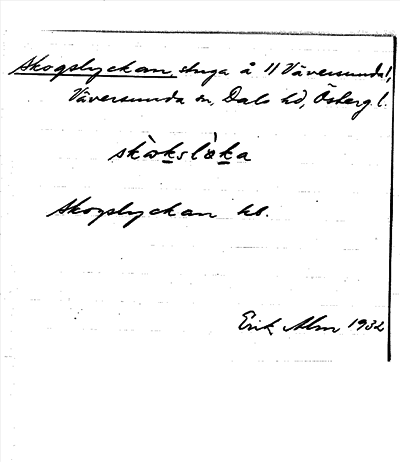 Skogslyckan, stuga å 11 Väversunda 1,
Väversunda sn, Dals hd, Östergl.
skòkslὰka
Skogslyckan kb.
Erik Alm 1932